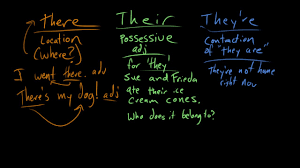 There
Location
(Where?)
I went there. adv
There's my dog! adj
Their
Possessive
adj
for 'they'
Sue and Frieda
ate their ice
cream cones.
Who does it belong to?
They're
Contraction
of "they are"
They're not home
right now